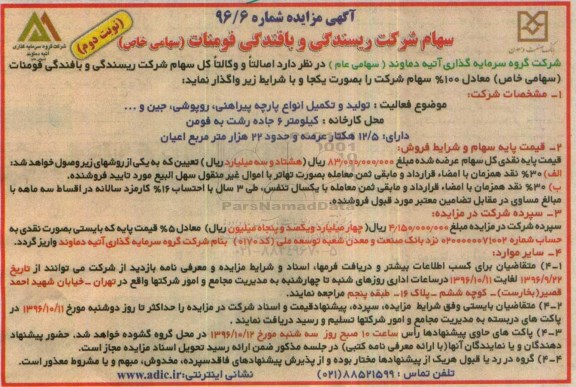 آگهی مزایده شماره ۹۶/۶
(نوبت دوم)
سهام شرکت ریسندگی و بافندگی قومنات (سهامی خاص)
شرکت گروه سرمایه گذاری آتیه دماوند
شرکت گروه سرمایه گذاری آتیه دماوند ( سهامی عام ) در نظر دارد اصالتاً و وکالتاً کل سهام شرکت ریسندگی و بافندگی قومنات
(سهامی خاص) معادل ۱۰۰% سهام شرکت را بصورت یکجا و با شرایط زیر واگذار نماید:
۱- مشخصات شرکت:
موضوع فعالیت : تولید و تکمیل انواع پارچه پیراهنی، روپوشی، جین و ...
محل کارخانه : کیلومتر ۶ جاده رشت به فومن
دارای: ۱۲/۵ هکتار عرصه و حدود ۲۲ هزار متر مربع اعیان
۲- قیمت پایه سهام و شرایط فروش:
قیمت پایه نقدی کل سهام عرضه شده مبلغ ۸۳/۰۰۰/۰۰۰/۰۰۰ ریال (هشتاد و سه میلیارد ریال ) تعیین که به یکی از روشهای زیر وصول خواهد شد:
الف) ۳۰% نقد همزمان با امضاء قرارداد و مابقی ثمن معامله بصورت تهاتر با اموال غیر منقول سهل البیع مورد تایید فروشنده.
ب) ۳۰% نقد همزمان با امضاء قرارداد و مابقی ثمن معامله با یکسال تنفس، طی ۳ سال با احتساب ۱۶% کارمزد سالانه در اقساط سه ماهه با
مبالغ مساوی در مقابل تضامین معتبر مورد قبول فروشنده.
ParsNamadData
۳- سپرده شرکت در مزایده:
سپرده شرکت در مزایده مبلغ ۴/۱۵۰/۰۰۰/۰۰۰ ریال( چهار میلیارد و یکصد و پنجاه میلیون ریال) معادل ۵% قیمت پایه که بایستی بصورت نقدی به
حساب شماره ۰۲۰۰۰۰۰۰۷۱۰۰۲ نزد بانک صنعت و معدن شعبه توسعه ملی (کد ۰۱۷۰) بنام شرکت گروه سرمایه گذاری آتیه دماوند واریز گردد.
۴- سایر موارد:
۴-۱) متقاضیان برای کسب اطلاعات بیشتر و دریافت فرمها، اسناد و شرایط مزایده و معرفی نامه بازدید از شرکت می توانند از تاریخ
۱۳۹۶/۹/۲۲ لغایت ۱۳۹۶/۱۰/۱۱ در ساعات اداری روزهای شنبه تا چهارشنبه به مدیریت مجامع و امور شرکتها واقع در تهران - خیابان شهید احمد
قصیر(بخارست)- کوچه ششم - پلاک ۱۶- طبقه پنجم مراجعه نمایند.
۴-۲) متقاضیان بایستی وفق شرایط مزایده سپرده، پیشنهاد قیمت و اسناد شرکت در مزایده را حداکثر تا روز دوشنبه مورخ ۱۳۹۶/۱۰/۱۱ در
پاکت های دربسته به مدیریت مجامع و امور شرکتها تسلیم و رسید دریافت نمایند.
۴-۳) پاکت های حاوی پیشنهادها رأس ساعت ۱۰ صبح روز سه شنبه مورخ ۱۳۹۶/۱۰/۱۲ در محل گروه گشوده خواهد شد. حضور پیشنهاد
دهندگان و یا نمایندگان آنها(با ارائه معرفی نامه کتبی) در جلسه مذکور ضمن ارائه رسید تحویل اسناد مزایده مجاز است.
۴-۴) گروه در رد یا قبول هریک از پیشنهادها مختار بوده و از پذیرش پیشنهادهای فاقد سپرده، مخدوش، مبهم و یا مشروط معذور است.
تلفن تماس : ۸۸۵۲۱۵۹۹ (۰۲۱) نشانی اینترنتی: www.adic.ir